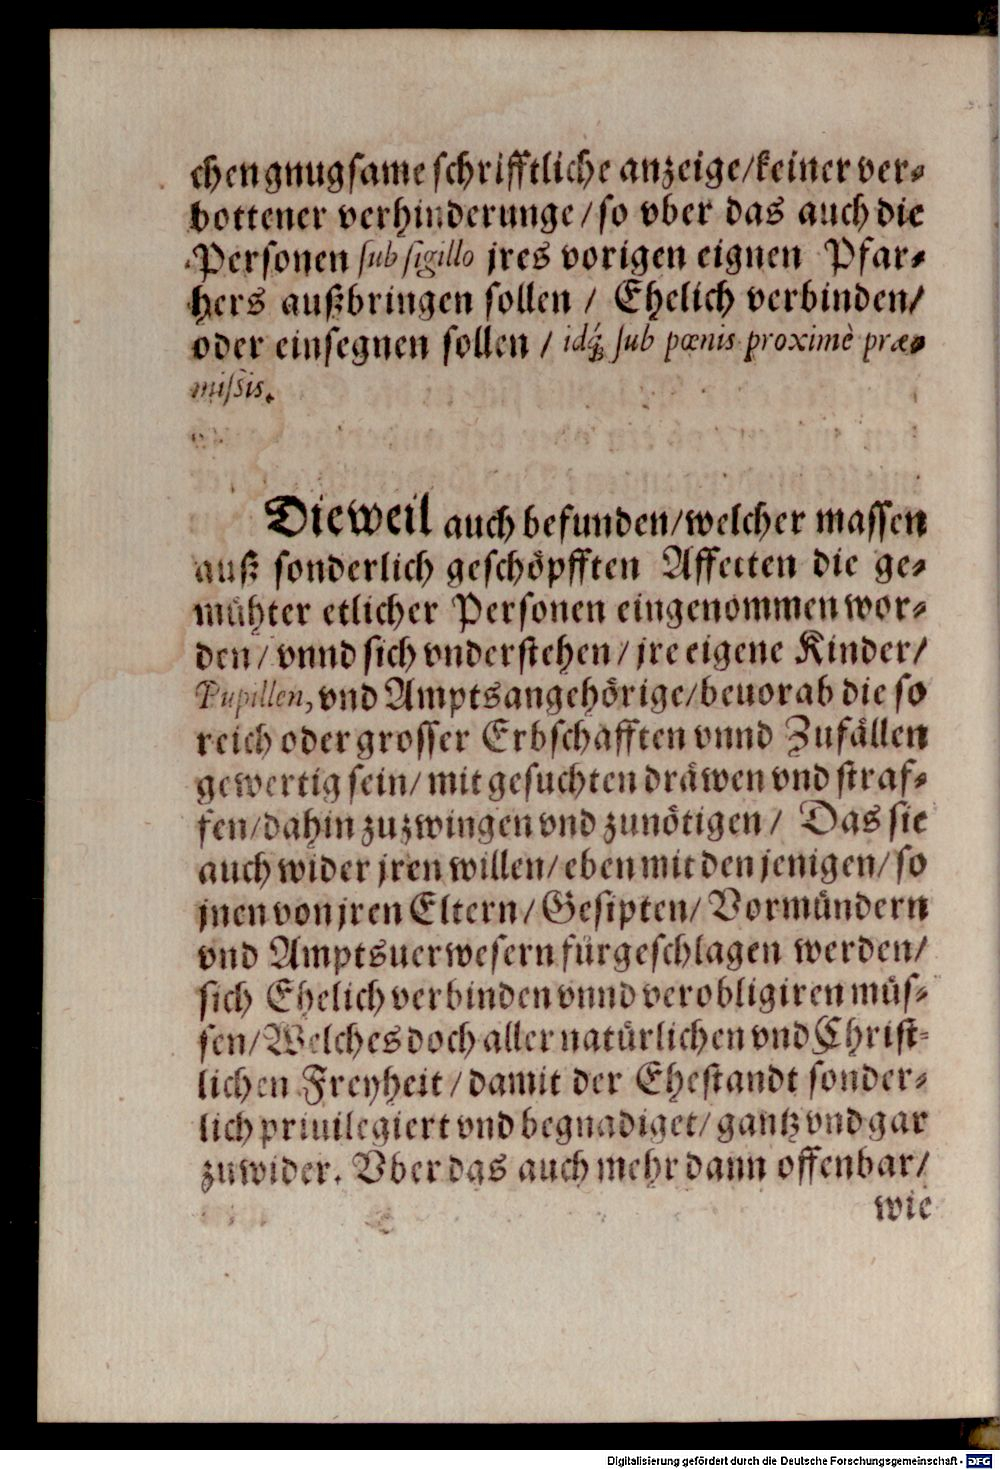 chen gnugsame schrifftliche anzeige/keiner ver-
bottener verhinderunge/so vber das auch die
Personen sub sigillo jres vorigen eignen Pfar-
hers außbringen sollen / Ehelich verbinden/
oder einsegnen sollen / idq́; sub pœnis proximè præ-
mißis.
Dieweil auch befunden/welcher massen
auß sonderlich geschöpfften Affecten die ge-
mühter etlicher Personen eingenommen wor-
den/ vnnd sich vnderstehen/ jre eigene Kinder/
Pupillen, vnd Amptsangehörige/beuorab die so
reich oder grosser Erbschafften vnnd Zufällen
gewertig sein/ mit gesuchten dräwen vnd straf-
fen/dahin zuzwingen vnd zunötigen/ Das sie
auch wider jren willen/eben mit den jenigen/so
jnen von jren Eltern/Gesipten/Vormündern
vnd Amptsuerwesern fürgeschlagen werden/
sich Ehelich verbinden vnnd verobligiren müs-
sen/Welches doch aller natürlichen vnd Christ-
lichen Freyheit/damit der Ehestandt sonder-
lich priuilegiert vnd begnadiget/gantz vnd gar
zuwider. Vber das auch mehr dann offenbar/
wie
Digitalisierung gefördert durch die Deutsche Forschungsgemeinschaft - DFG